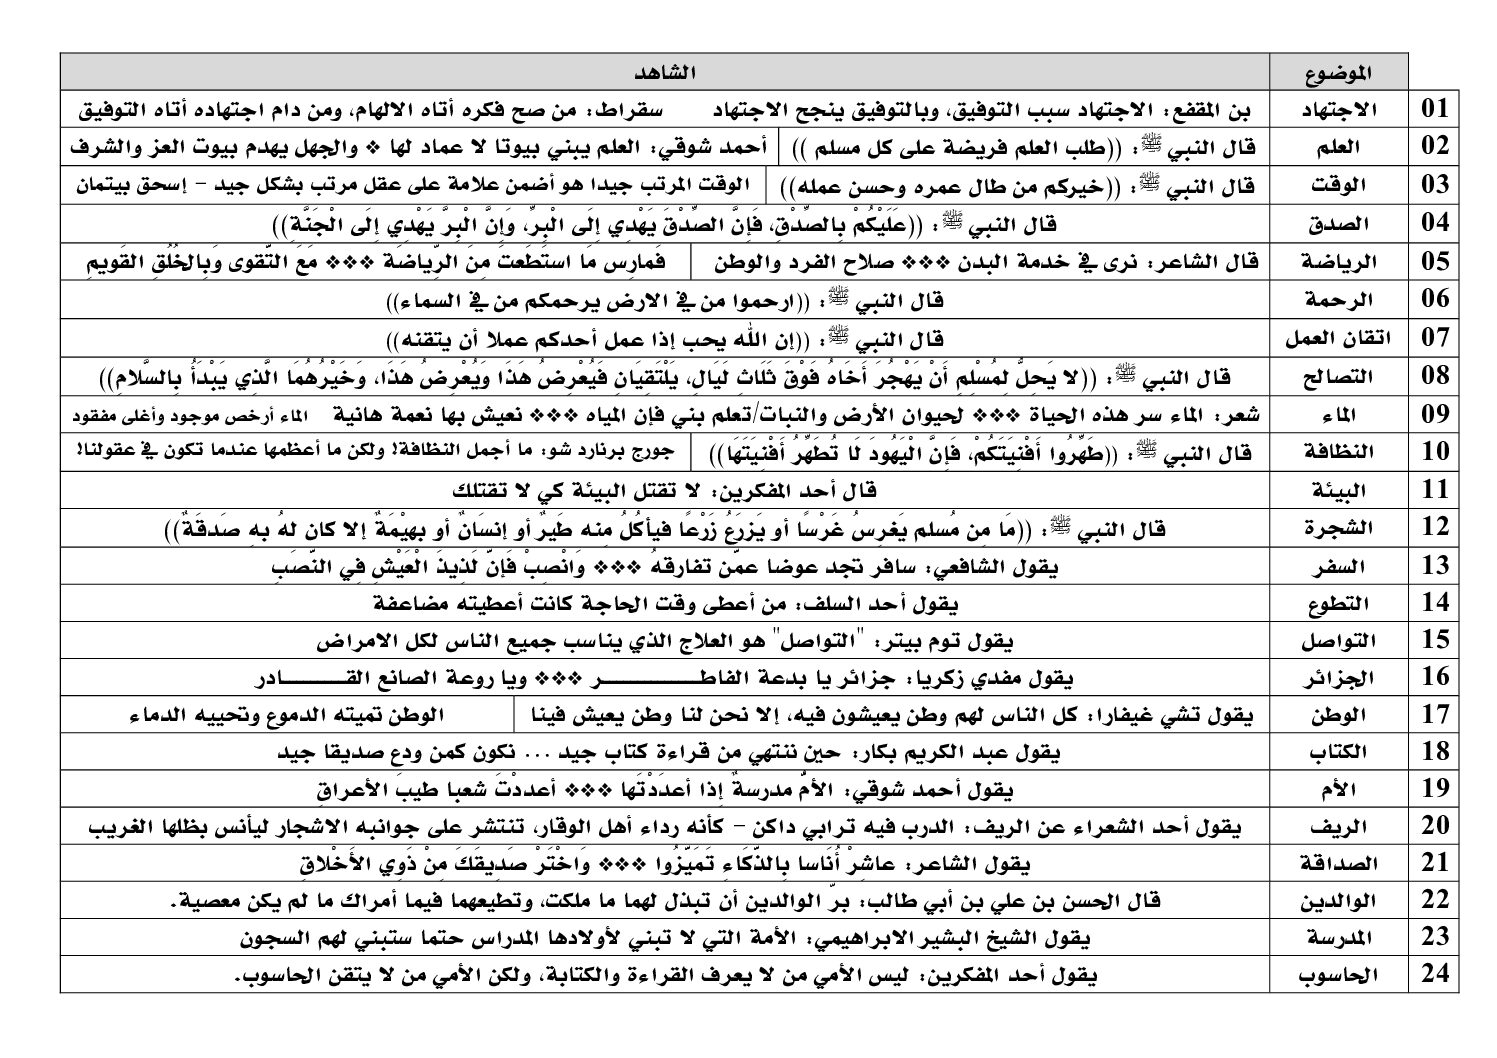 الموضوع الشاهد
01 الاجتهاد بن المقفع: الاجتهاد سبب التوفيق، وبالتوفيق ينجح الاجتهاد سقراط: من صح فكره أتاه الالهام، ومن دام اجتهاده أتاه التوفيق
02 العلم قال النبي ﷺ: ((طلب العلم فريضة على كل مسلم )) أحمد شوقي: العلم يبني بيوتا لا عماد لها ❖ والجهل يهدم بيوت العز والشرف
03 الوقت قال النبي ﷺ: ((خيركم من طال عمره وحسن عمله)) الوقت المرتب جيدا هو أضمن علامة على عقل مرتب بشكل جيد – إسحق بيتمان
04 الصدق قال النبي ﷺ: ((عَلَيْكُمْ بِالصِّدْقِ، فَإِنَّ الصِّدْقَ يَهْدِي إِلَى الْبِرِّ، وَإِنَّ الْبِرَّ يَهْدِي إِلَى الْجَنَّةِ))
05 الرياضة قال الشاعر: نرى في خدمة البدن ❖❖❖ صلاح الفرد والوطن فَمارِس مَا استَطَعتَ مِنَ الرِّياضَة ❖❖❖ مَعَ التَّقوى وَبِالخُلُقِ القَويمِ
06 الرحمة قال النبي ﷺ: ((ارحموا من في الارض يرحمكم من في السماء))
07 اتقان العمل قال النبي ﷺ: ((إن الله يحب إذا عمل أحدكم عملا أن يتقنه))
08 التصالح قال النبي ﷺ: ((لا يَحِلُّ لِمُسْلِمٍ أَنْ يَهْجُرَ أَخَاهُ فَوْقَ ثَلَاثِ لَيَالٍ، يَلْتَقِيَانِ فَيُعْرِضُ هَذَا وَيُعْرِضُ هَذَا، وَخَيْرُهُمَا الَّذِي يَبْدَأُ بِالسَّلَامِ))
09 الماء شعر: الماء سر هذه الحياة ❖❖❖ لحيوان الأرض والنبات/تعلم بني فإن المياه ❖❖❖ نعيش بها نعمة هانية الماء أرخص موجود وأغلى مفقود
10 النظافة قال النبي ﷺ: ((طَهِّرُوا أَفْنِيَتَكُمْ، فَإِنَّ الْيَهُودَ لَا تُطَهِّرُ أَفْنِيَتَهَا)) جورج برنارد شو: ما أجمل النظافة! ولكن ما أعظمها عندما تكون في عقولنا!
11 البيئة قال أحد المفكرين: لا تقتل البيئة كي لا تقتلك
12 الشجرة قال النبي ﷺ: ((مَا مِن مُسلم يَغرِسُ غَرْسًا أو يَزرَعُ زَرْعًا فيأكُلُ مِنه طَيرٌ أو إنسَانٌ أو بهيْمَةٌ إلا كان لهُ بهِ صَدقَةٌ))
13 السفر يقول الشافعي: سافر تجد عوضا عمَّن تفارقهُ ❖❖❖ وَانْصِبْ فَإنَّ لَذِيذَ الْعَيْشِ فِي النَّصَبِ
14 التطوع يقول أحد السلف: من أعطى وقت الحاجة كانت أعطيته مضاعفة
15 التواصل يقول توم بيتر: "التواصل" هو العلاج الذي يناسب جميع الناس لكل الامراض
16 الجزائر يقول مفدي زكريا: جزائر يا بدعة الفاطـــــــــــر ❖❖❖ ويا روعة الصانع القــــــــادر
17 الوطن يقول تشي غيفارا: كل الناس لهم وطن يعيشون فيه، إلا نحن لنا وطن يعيش فينا الوطن تميته الدموع وتحييه الدماء
18 الكتاب يقول عبد الكريم بكار: حين ننتهي من قراءة كتاب جيد ... نكون كمن ودع صديقا جيد
19 الأم يقول أحمد شوقي: الأمّ مدرسةٌ إذا أعدَدْتَها ❖❖❖ أعددْتَ شعبا طيبَ الأعراقِ
20 الريف يقول أحد الشعراء عن الريف: الدرب فيه ترابي داكن – كأنه رداء أهل الوقار، تنتشر على جوانبه الاشجار ليأنس بظلها الغريب
21 الصداقة يقول الشاعر: عاشِرْ أُنَاسا بِالذَّكَاءِ تَمَيَّزُوا ❖❖❖ وَاخْتَرْ صَدِيقَكَ مِنْ ذَوِي الأَخْلاقِ
22 الوالدين قال الحسن بن علي بن أبي طالب: برّ الوالدين أن تبذل لهما ما ملكت، وتطيعهما فيما أمراك ما لم يكن معصية.
23 المدرسة يقول الشيخ البشير الابراهيمي: الأمة التي لا تبني لأولادها المدراس حتما ستبني لهم السجون
24 الحاسوب يقول أحد المفكرين: ليس الأمي من لا يعرف القراءة والكتابة، ولكن الأمي من لا يتقن الحاسوب.